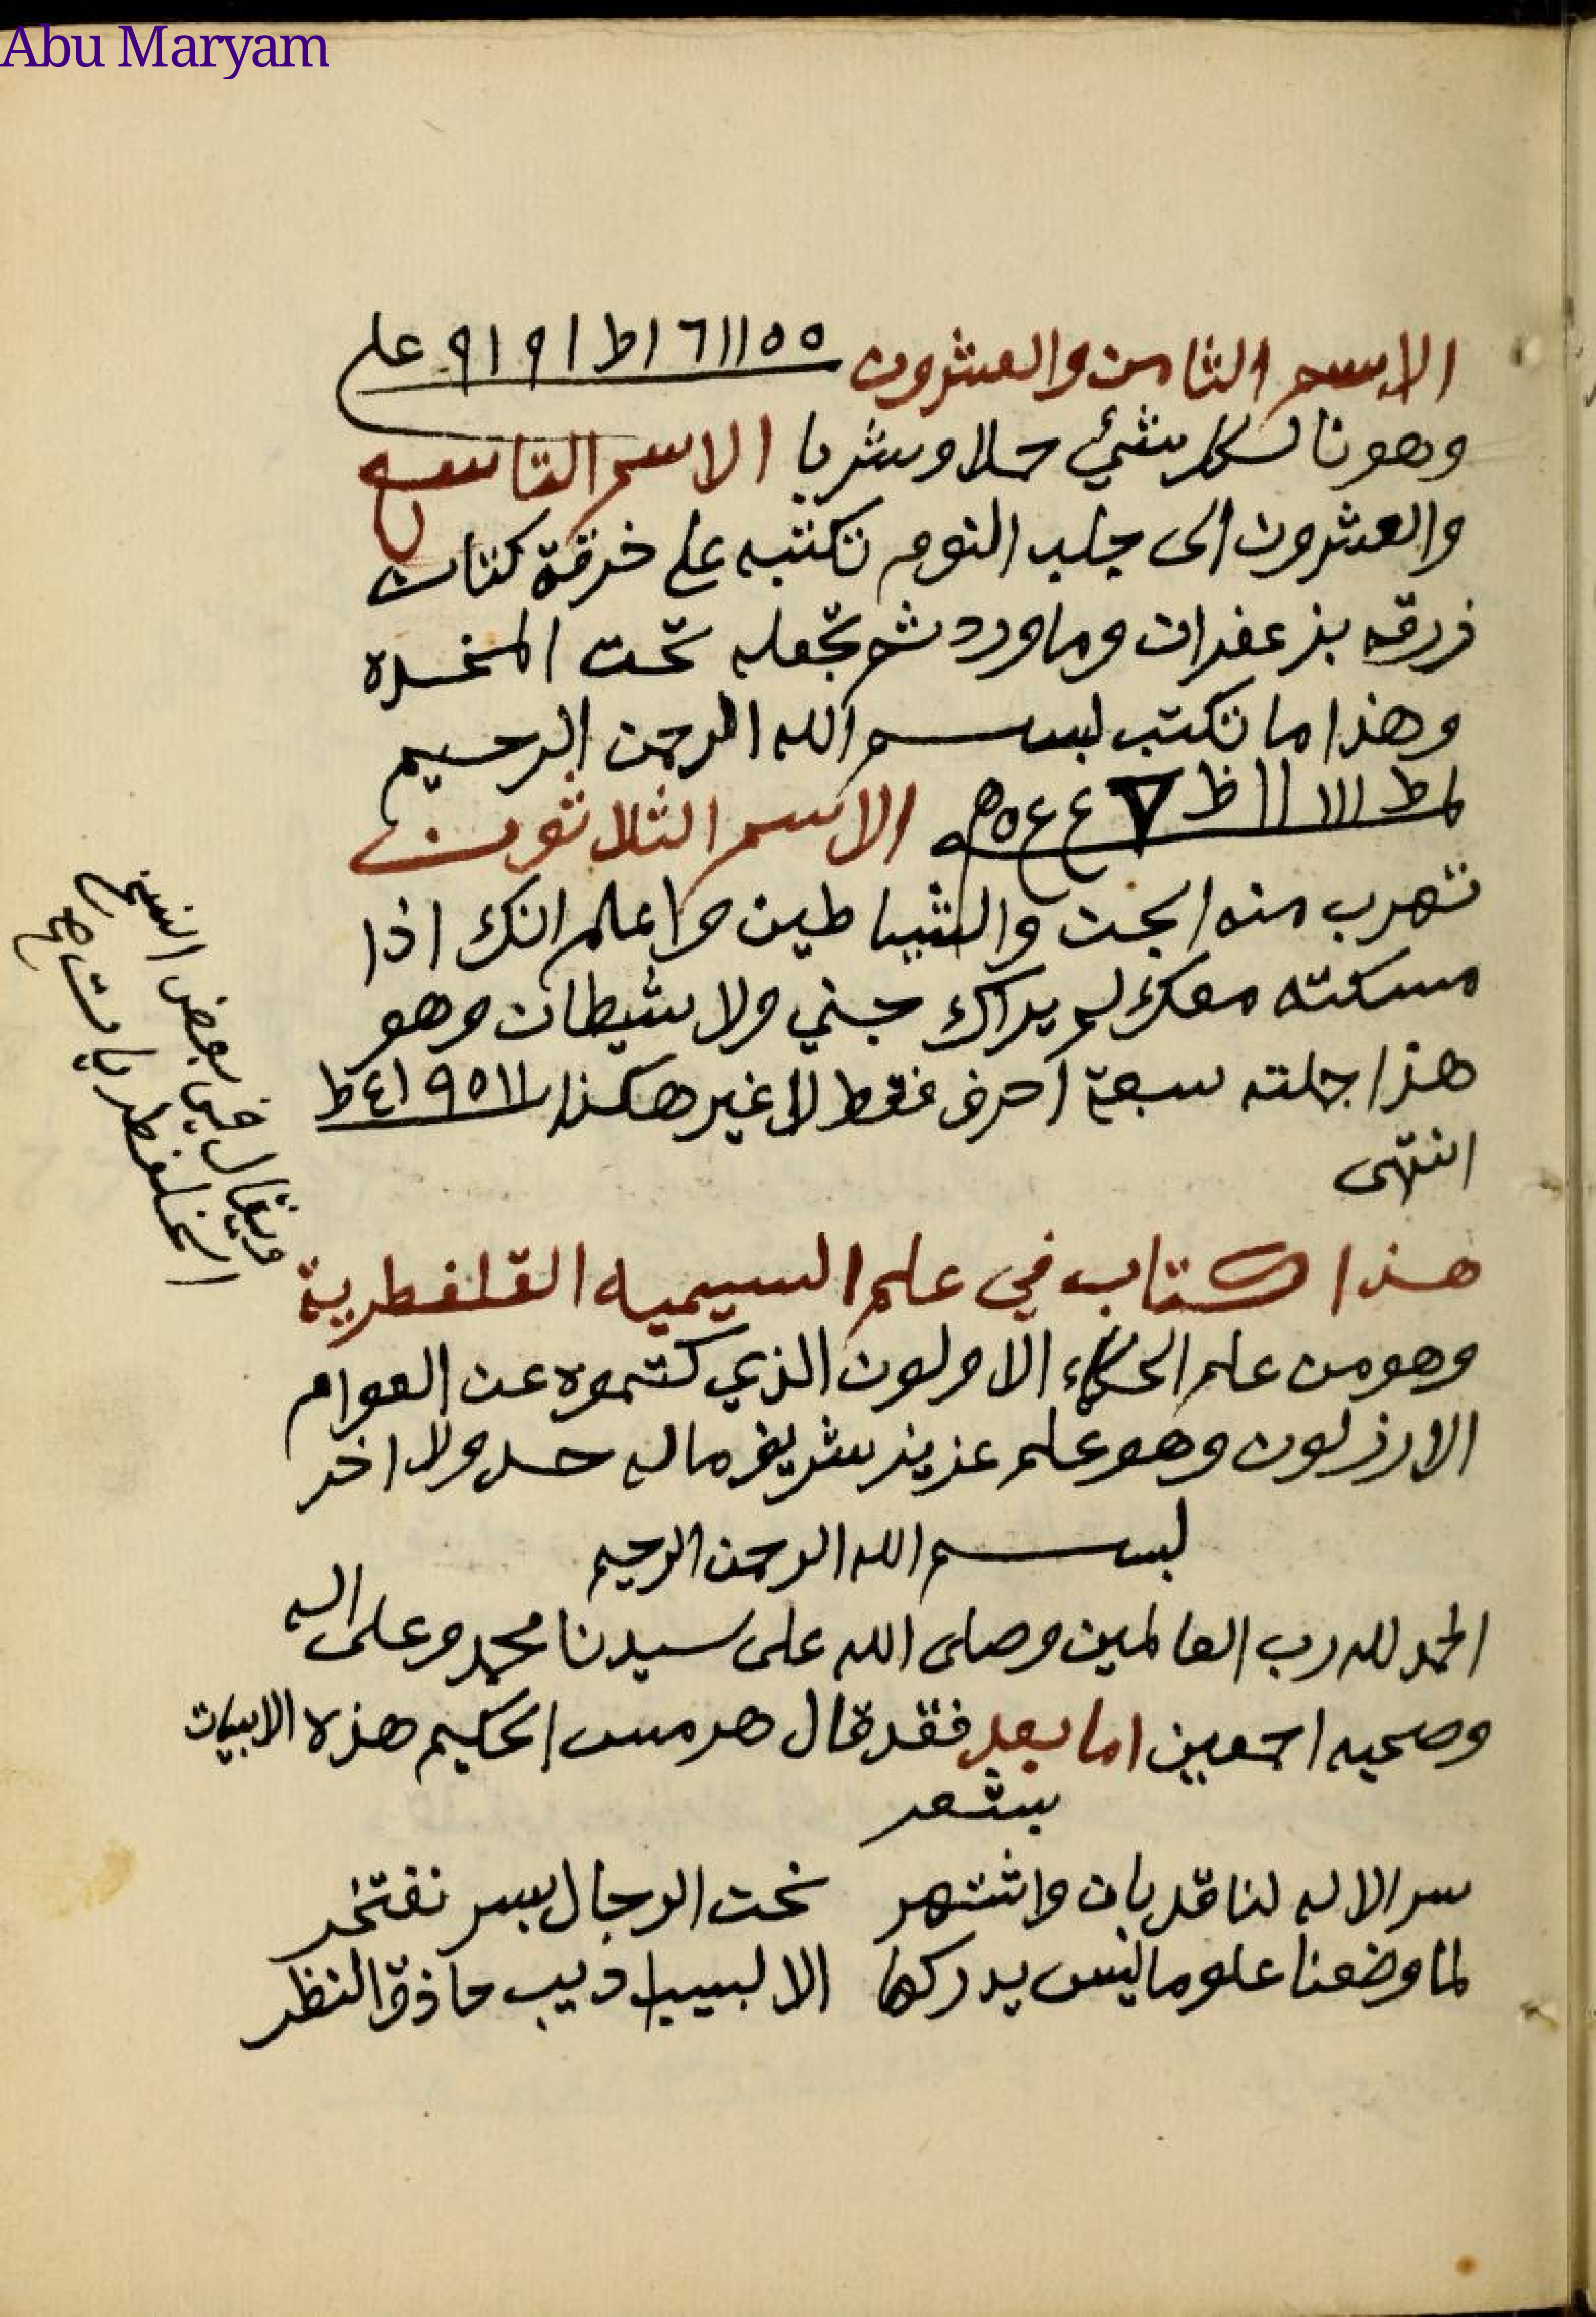 Abu Maryam
الاسم الثامن والعشرون ٥٥ ١١ ٦ ١ط ١ ٩ ١ ٩ علم
وهونا لكل شئي حملا وشربا الاسم التاسع
والعشرون الى جلب النوم تكتبه على خرقة كتان
زرقه بزعفران وماورد ثم تجعله تحت المخده
وهذا ما تكتب بسم الله الرحمن الرحيم
الاسم الثلاثون
تهرب منه الجن والشياطين واعلم انك اذا
مسكته معك لم يراك جني ولا شيطان وهو
هذا جملته سبعة احرف فقط لا غير هكذا ١١ ٥ ٩ ١ ٤ ط
انتهى
ويقال في بعض النسخ
هذا كتاب في علم السيميه القلفطرية
وهو من علم الحكماء الاولون الذي كتموه عن العوام
الارذلون وهو علم عزيز شريف ماله حد ولا اخر
بسم الله الرحمن الرحيم
الحمد لله رب العالمين وصلى الله على سيدنا محمد وعلى اله
وصحبه اجمعين اما بعد فقد قال هرمس الحكيم هذه الابيات
بشعر
سر الاله لنا قد بان واشتهر نحن الرجال بسر نفتخر
لما وضعنا علوما ليس يدركها الا لبيب حاذق النظر